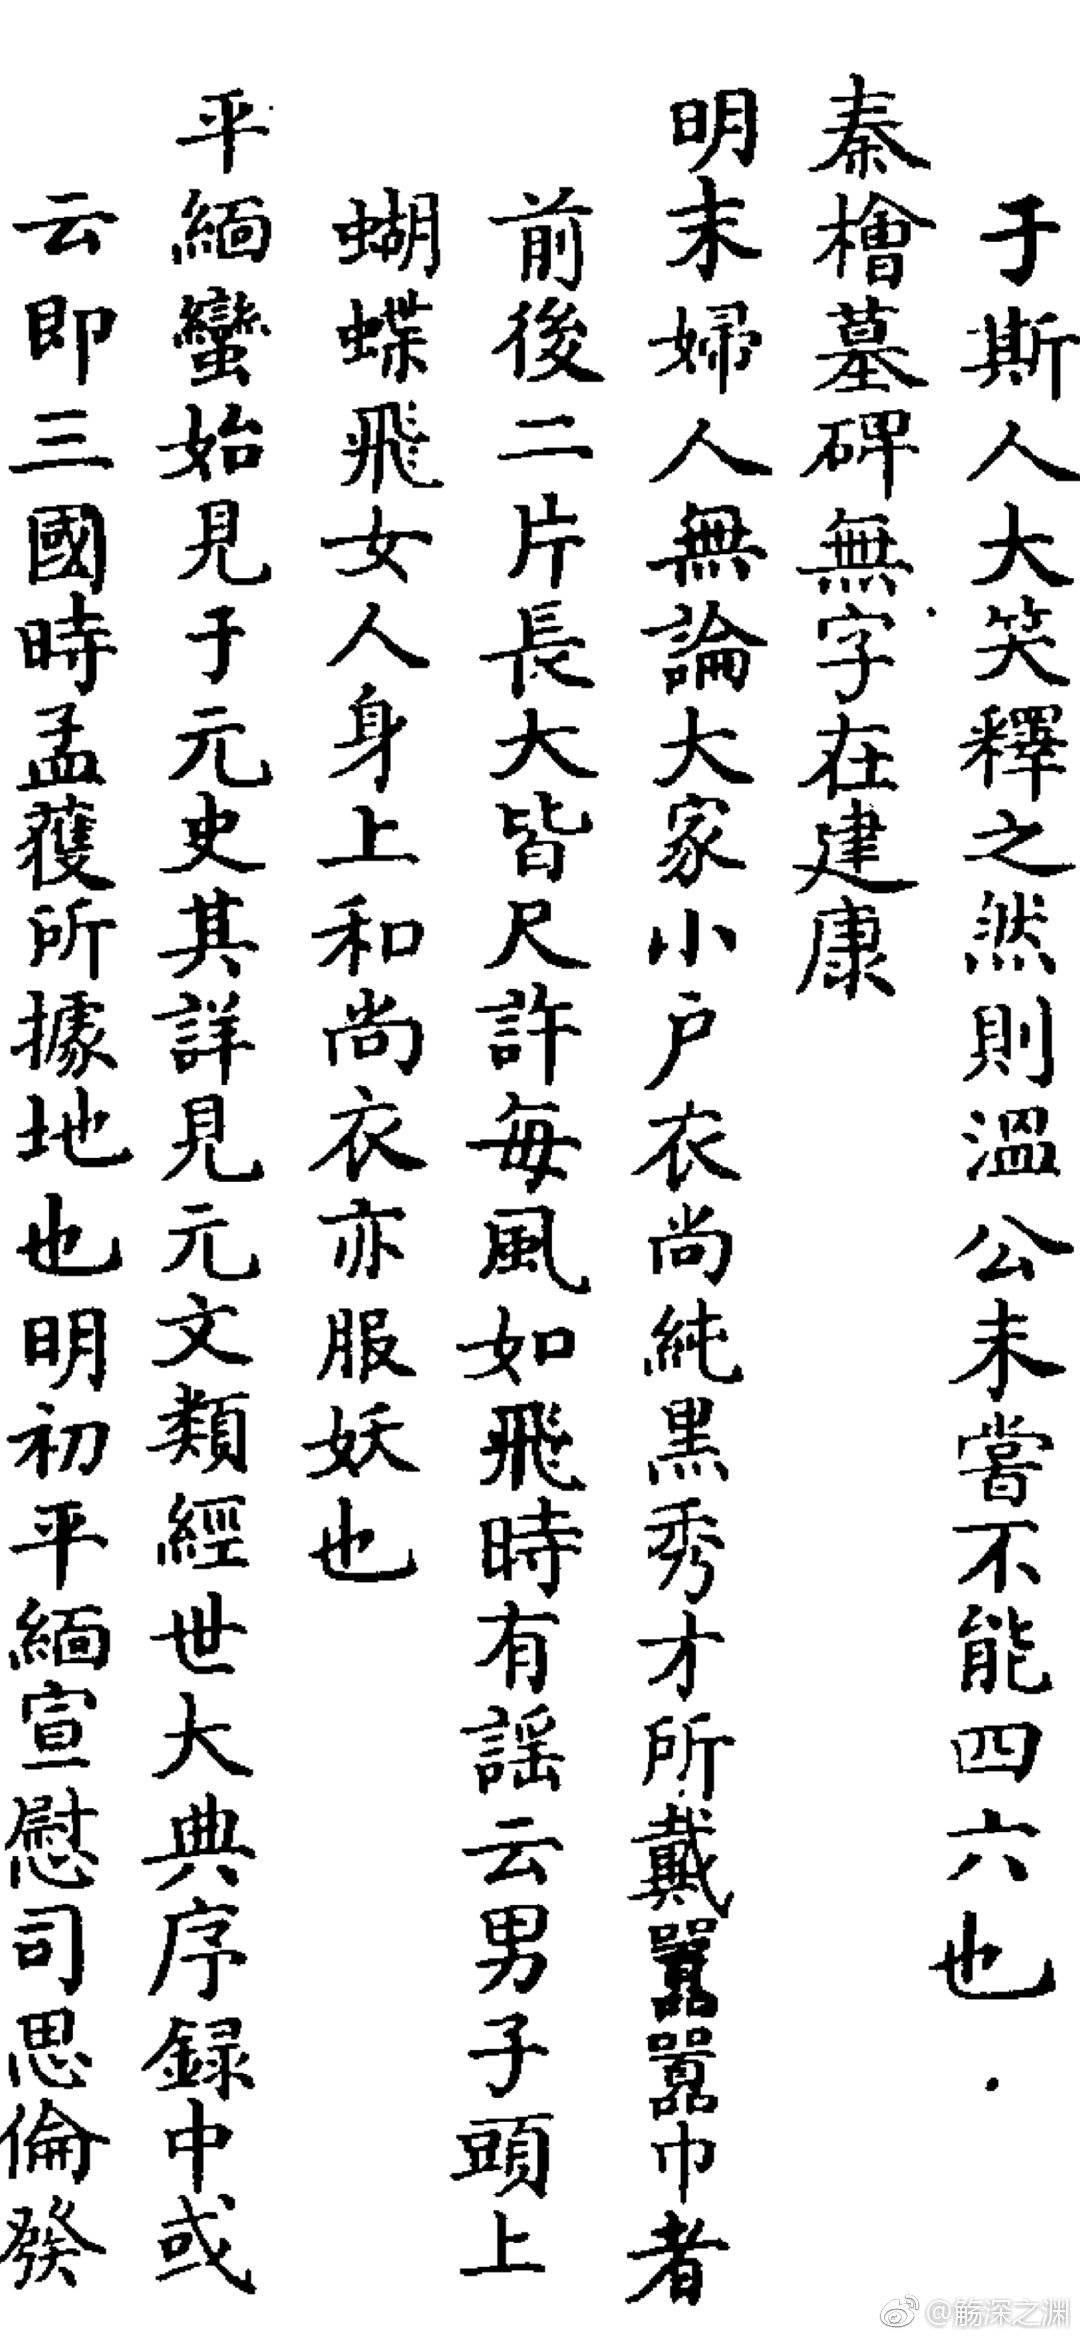 于斯人大笑釋之然則溫公未嘗不能四六也
秦檜墓碑無字在建康
明末婦人無論大家小户衣尚純黑秀才所戴囂囂巾者
前後二片長大皆尺許每風如飛時有謡云男子頭上
蝴蝶飛女人身上和尚衣亦服妖也
平緬蠻始見于元史其詳見元文類經世大典序録中或
云即三國時孟獲所據地也明初平緬宣慰司思倫發
@觞深之渊